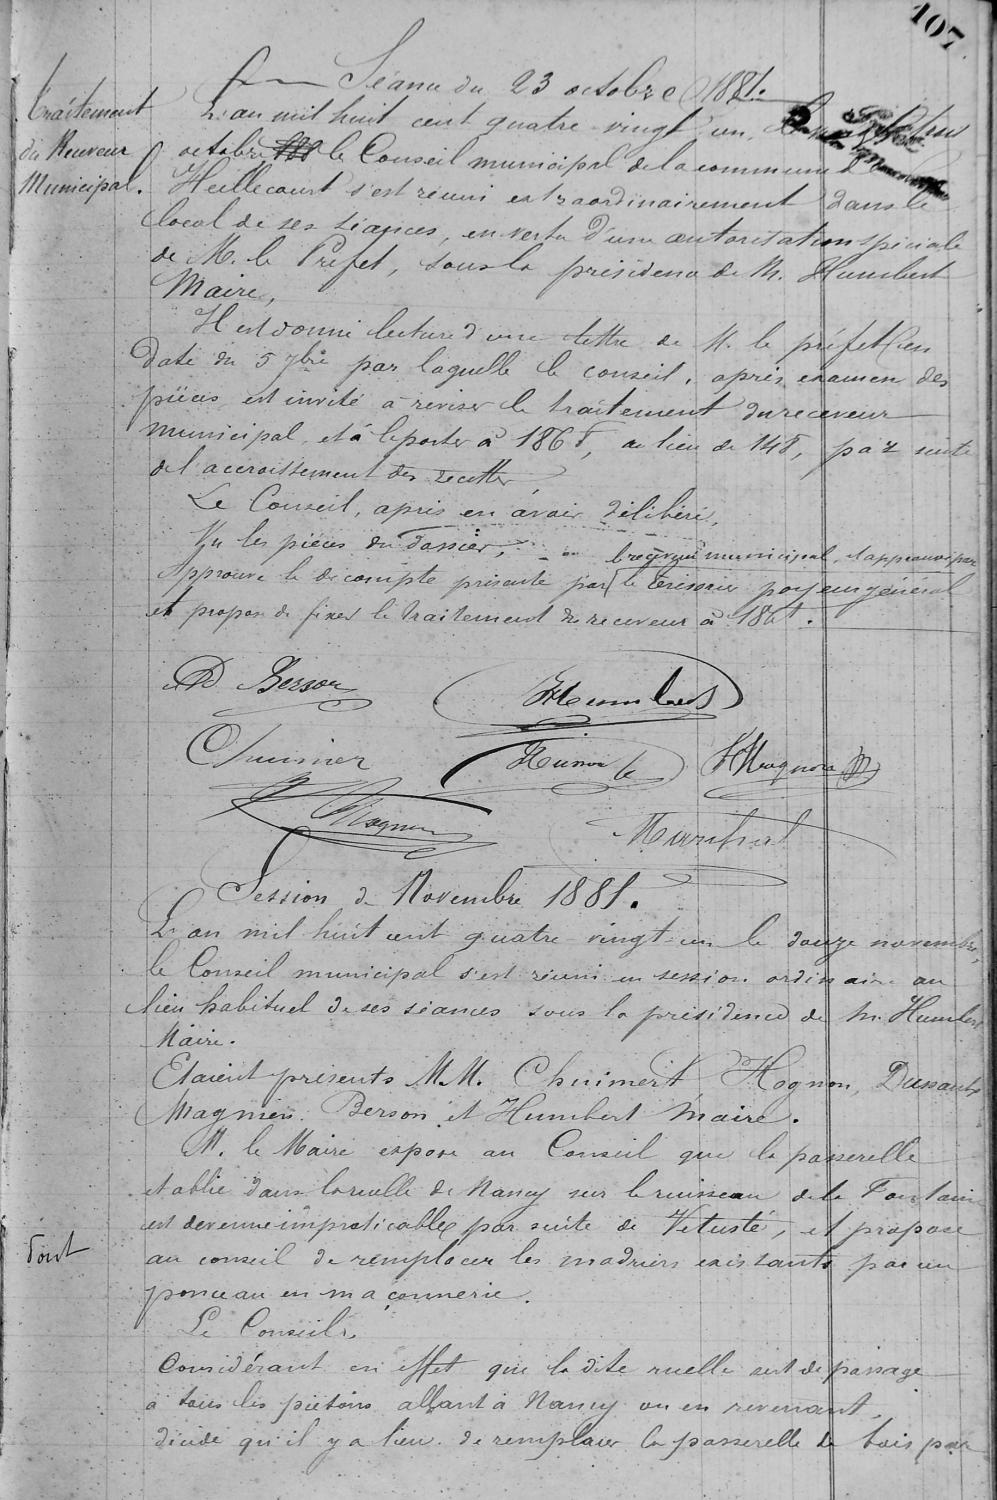 107
Séance du 23 octobre 1881.
Traitement
du Receveur
Municipal.
L'an mil huit cent quatre-vingt un,
octobre le Conseil municipal de la commune de
Heillecourt s'est réuni extraordinairement dans le
local de ses séances, en vertu d'une autorisation spéciale
de M. le Préfet, sous la présidence de M. Humbert
Maire,
Il est donné lecture d'une lettre de M. le préfet en
date du 5 7bre par laquelle le conseil, après examen des
pièces est invité à reviser le traitement du receveur
municipal et à le porter à 186 f, au lieu de 148, par suite
de l'accroissement des recettes,
Le Conseil, après en avoir délibéré,
Vu les pièces du dossier,
le receveur municipal, et approuvé par
Approuve le décompte présenté par le trésorier payeur général
et propose de fixer le traitement du receveur à 186 f.
D Berson Humbert
Chuimer Hognon
Magnien
Maréchal
Session de Novembre 1881.
L'an mil huit cent quatre-vingt-un le douze novembre,
le Conseil municipal s'est réuni en session ordinaire au
lieu habituel de ses séances sous la présidence de M. Humbert
Maire.
Etaient présents M.M. Chuimert Hognon, Dussaulx
Magnien Berson et Humbert Maire.
M. le Maire expose au Conseil que la passerelle
établie dans la ruelle de Nancy sur le ruisseau de la Fontaine
est devenue impraticable par suite de Vetusté, et propose
Pont
au conseil de remplacer les madriers existants par un
ponceau en maçonnerie.
Le Conseil,
Considérant en effet que la dite ruelle sert de passage
à tous les piétons allant à Nancy ou en revenant,
décide qu'il y a lieu de remplacer la passerelle de bois par